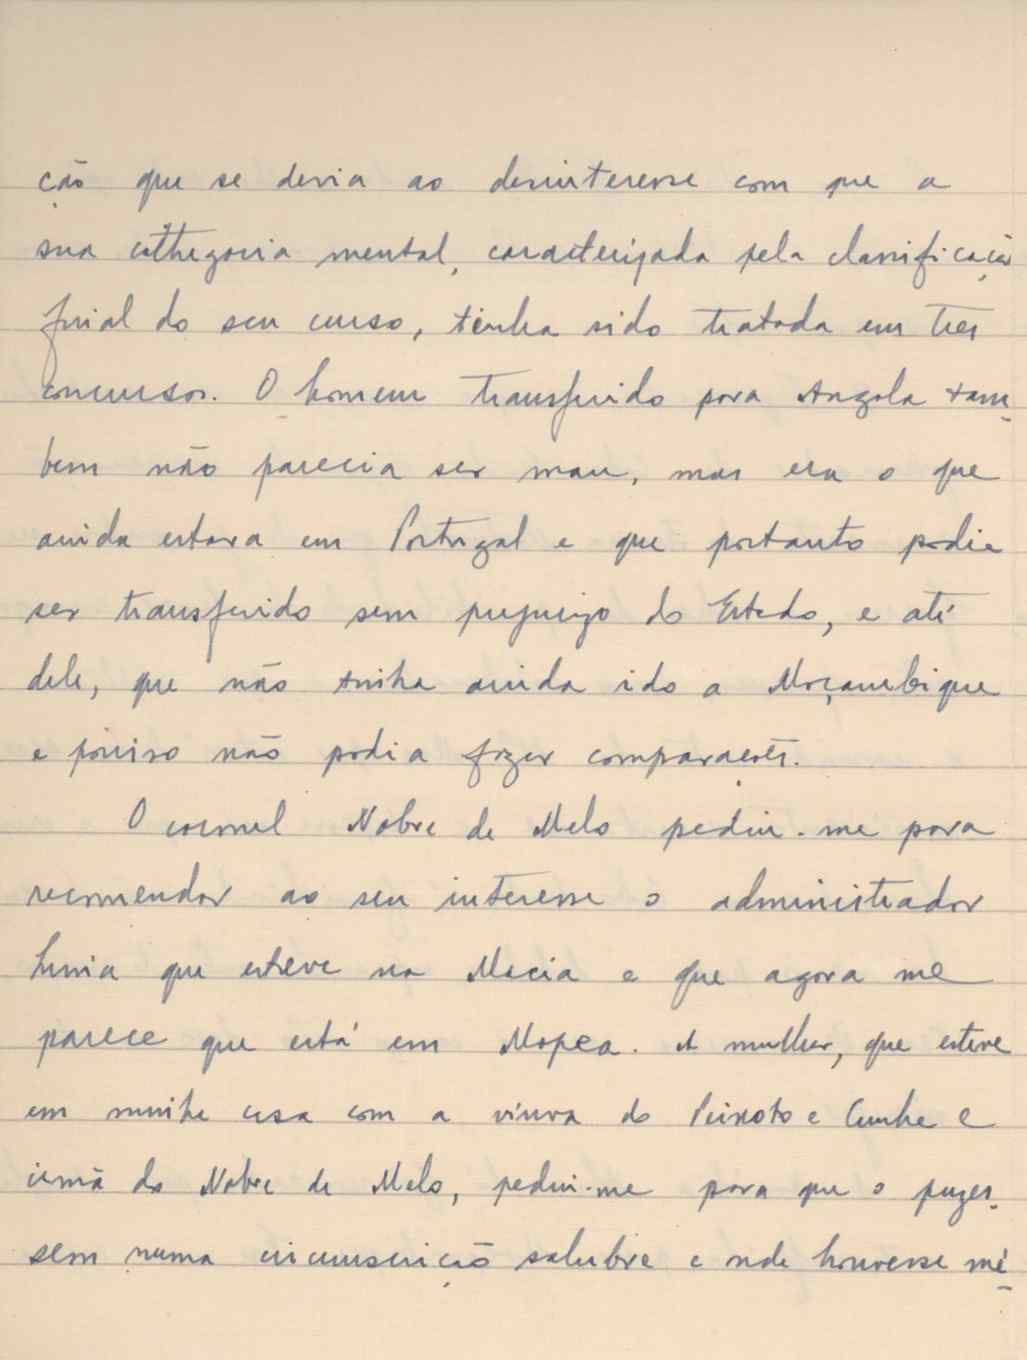 ção que se devia ao desinteresse com que a
sua cathegoria mental, caracterizada pela classificação
final do seu curso, tinha sido tratada em tres
concursos. O homem transferido para Angola tam-
bem não parecia ser mau, mas era o que
ainda estava em Portugal e que portanto podia
ser transferido sem prejuizo do Estado, e até
dele, que não tinha ainda ido a Moçambique
e porisso não podia fazer comparações.
O coronel Nobre de Melo pediu-me para
recomendar ao seu interesse o administrador
que esteve na Macia e que agora me
parece que está em Mopea. A mulher, que esteve
em minha casa com a viuva do Peixoto e Cunha e
irmã do Nobre de Melo, pediu-me para que o puzes-
sem numa circunscrição salubre e onde houvesse mé-